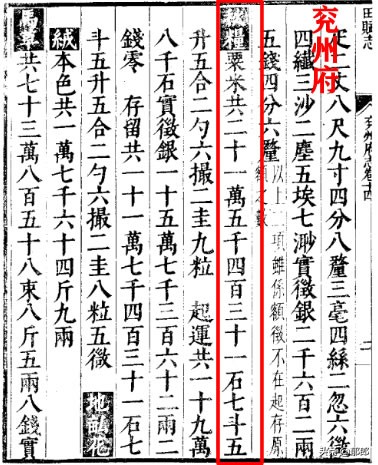 田賦志
兗州府
二丈八尺九寸四分八釐三毫四絲二忽六微
四纖三沙二塵五埃七渺實徵銀二千六百二兩
五錢四分六釐 以上二項雖係額徵不在起存原
額之數
秋糧 粟米共二十一萬五千四百三十一石七斗五
升五合二勺六撮二圭九粒 起運共一十九萬
八千石實徵銀一十五萬七千三百六十二兩二
錢零 存留共一十一萬七千四百三十一石七
斗五升五合二勺六撮二圭八粒五微 地畝花
絨 本色共一萬七千六十四斤九兩
馬草 共七十三萬八百五十八束八斤五兩八錢實